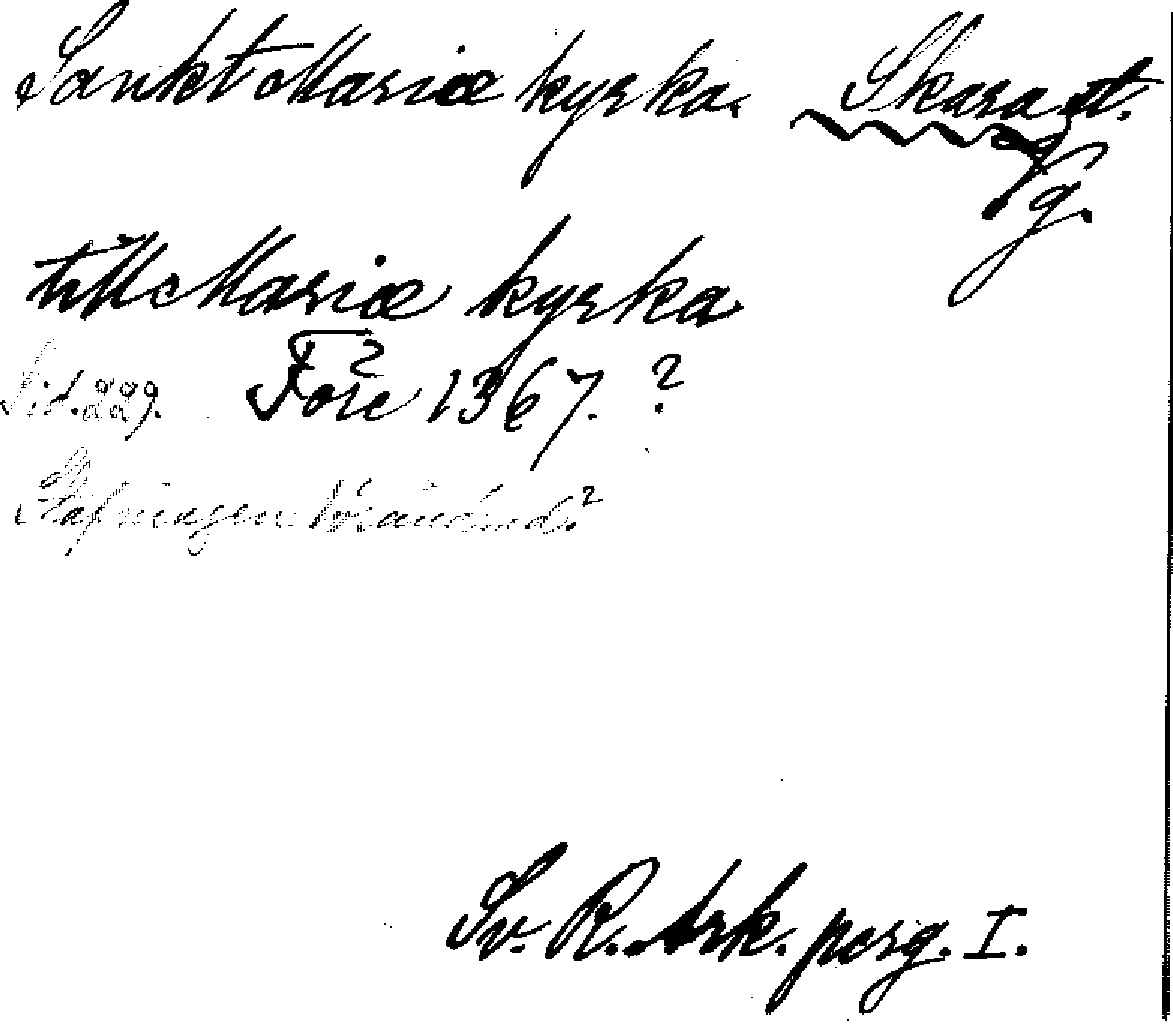 Sankt Mariæ kyrka. Skara st.
Vg.
till Mariæ kyrka
Sid. 229. Före 1367. ?
Stafningen förändrad?
Sv. R. Ark. perg. I.